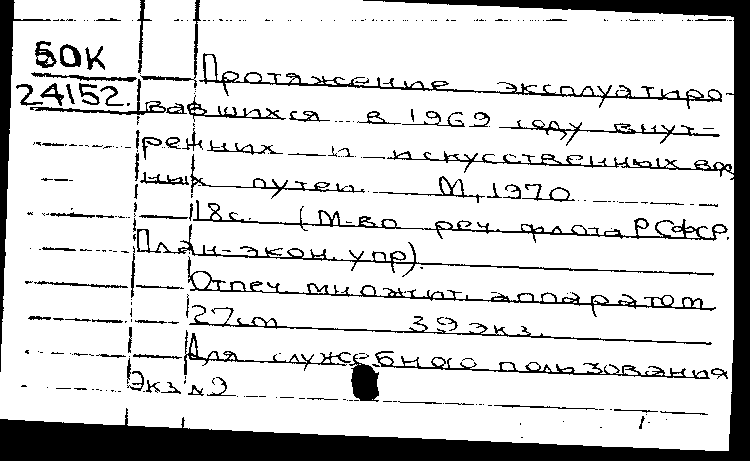 50К
24152.
Протяжение эксплуатиро-
вавшихся в 1969 году внут-
ренних и искусственных вод
ных путей. М, 1970
18с. (М-во реч. флота РСФСР.
План-экон. упр).
Отпеч. множит. аппаратом
27см 39 экз.
Для служебного пользования
Экз №9
1